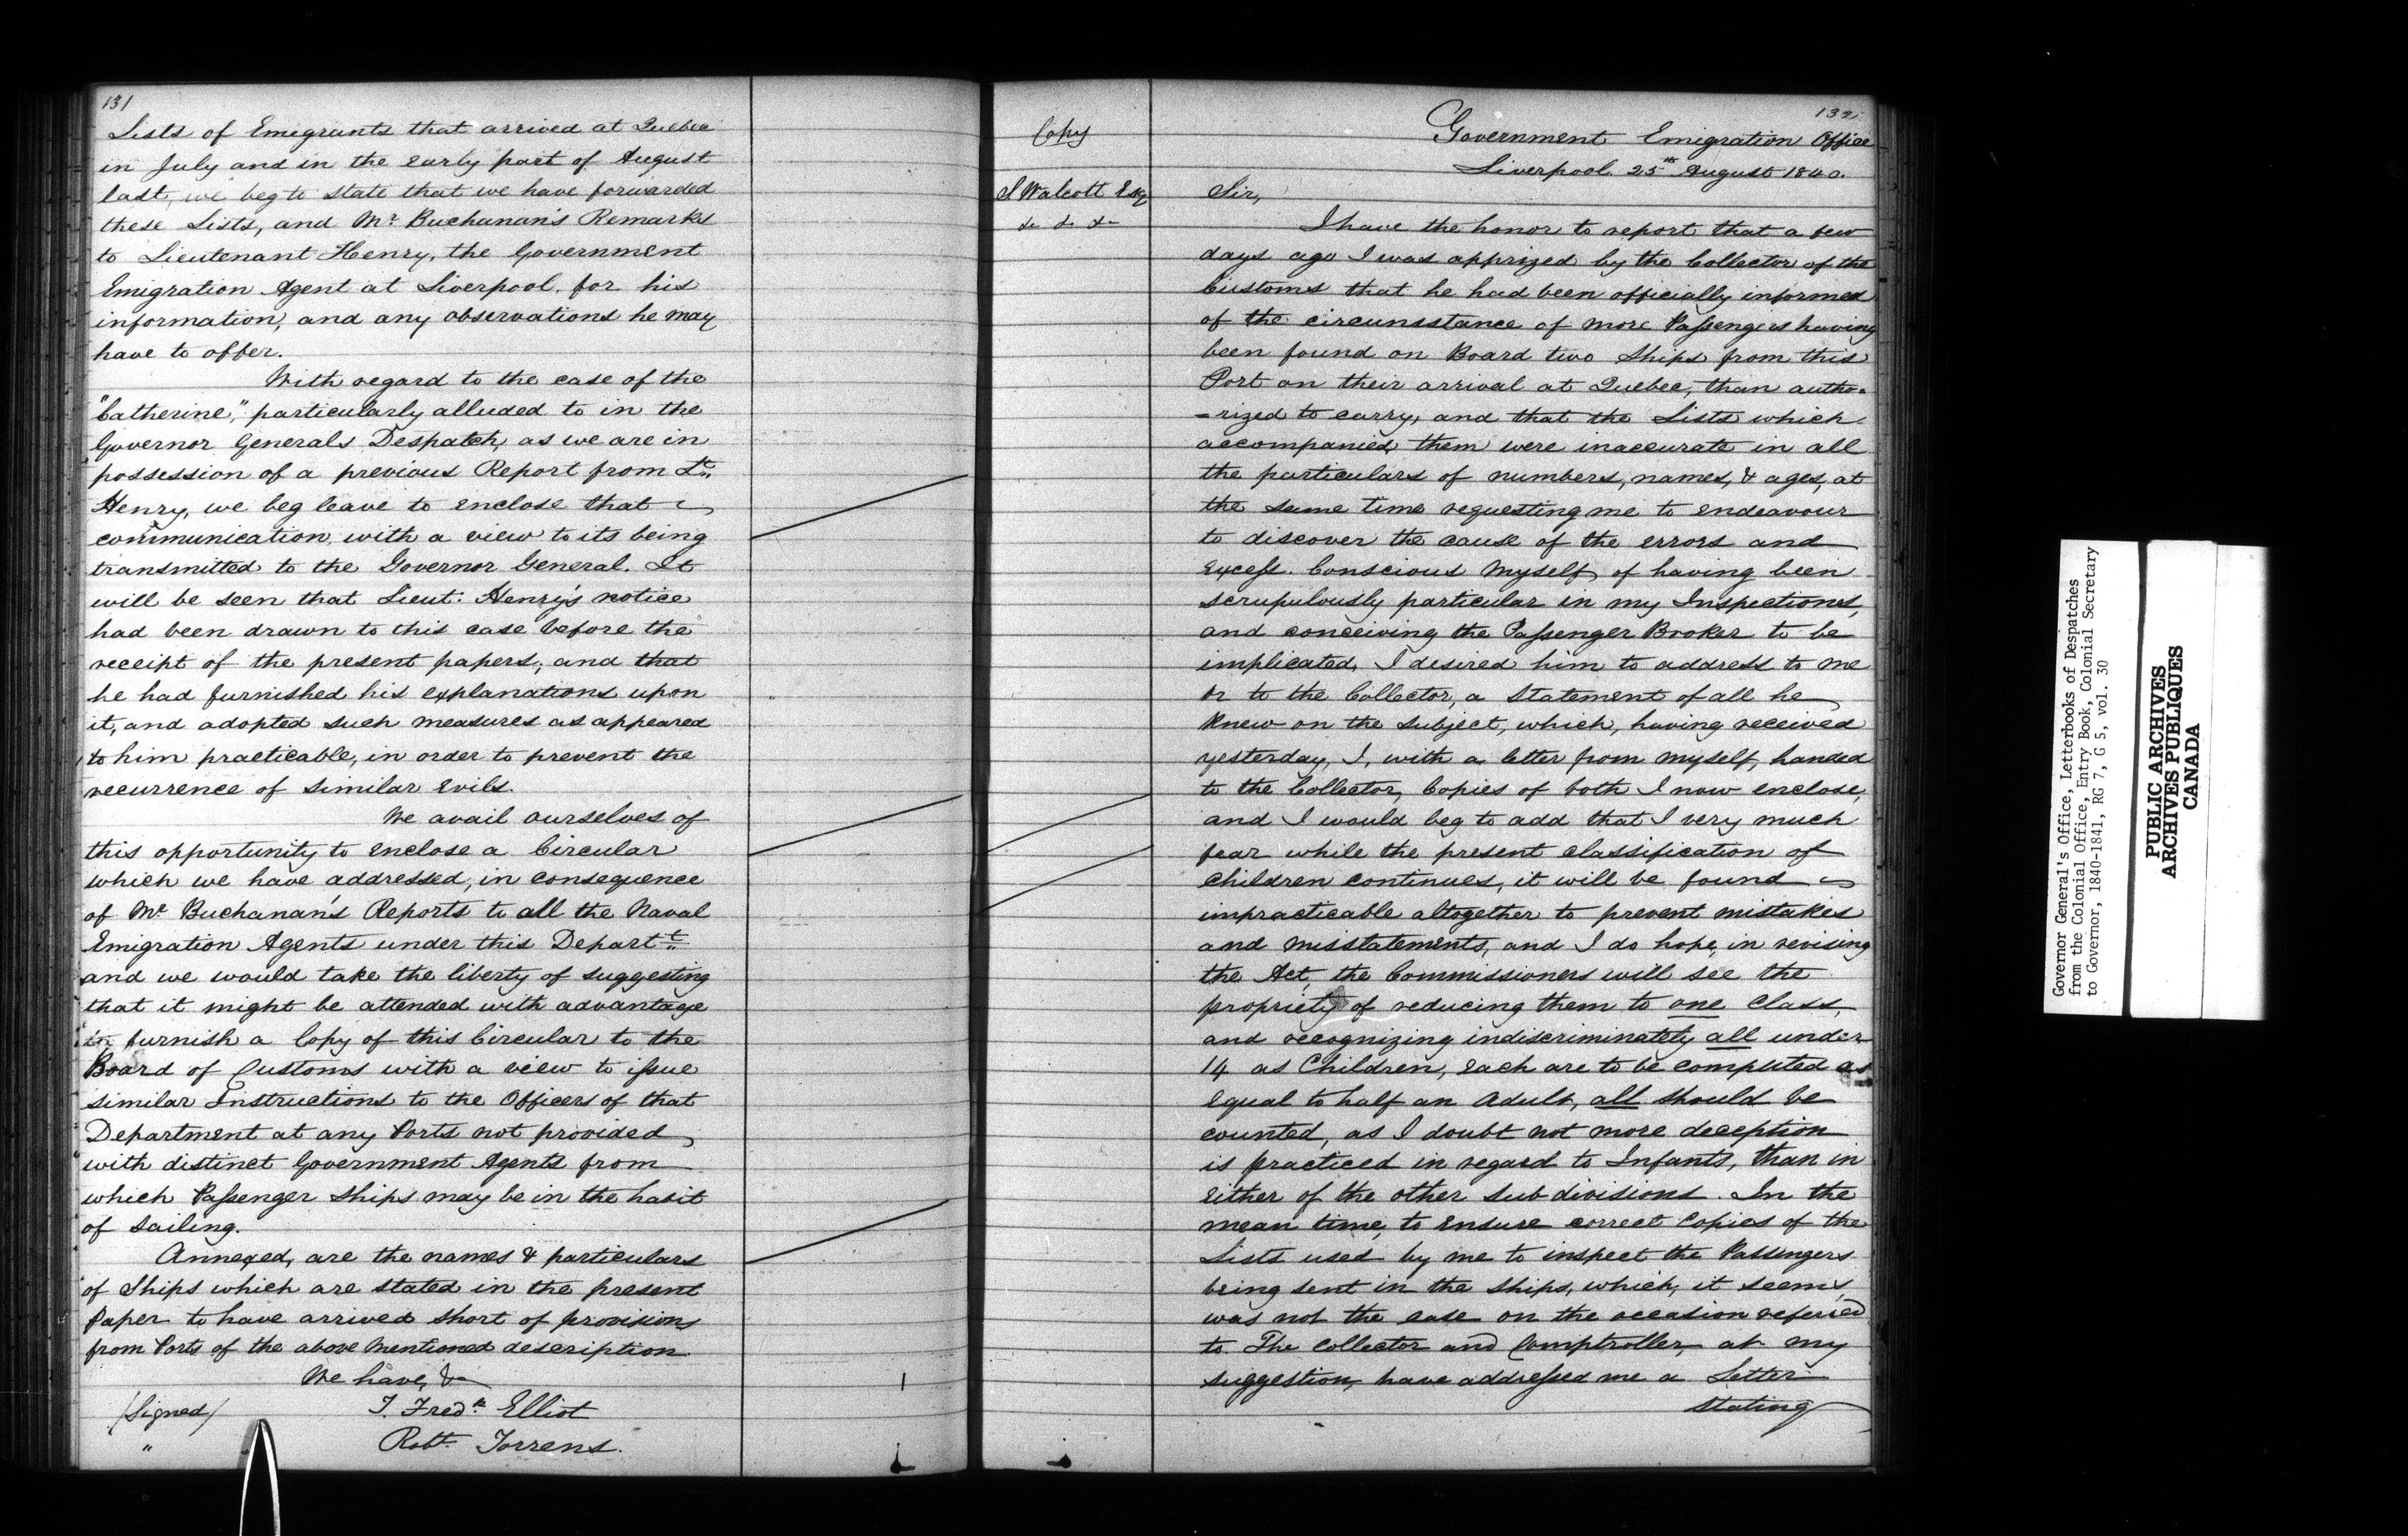 131
Lists of Emigrants that arrived at Quebec
in July and in the early part of August
last, we beg to state that we have forwarded
these Lists, and Mr Buchanan's Remarks
to Lieutenant Henry, the Government
Emigration Agent at Liverpool, for his
information, and any observations he may
have to offer.
With regard to the case of the
"Catherine," particularly alluded to in the
Governor Generals Despatch, as we are in
possession of a previous Report from Lt.
Henry, we beg leave to enclose that
communication with a view to its being
transmitted to the Governor General. It
will be seen that Lieut: Henry's notice
had been drawn to this case before the
receipt of the present papers; and that
he had furnished his explanations upon
it, and adopted such measures as appeared
to him practicable, in order to prevent the
recurrence of similar Evils.
We avail ourselves of
this opportunity to enclose a Circular
which we have addressed, in consequence
of Mr Buchanan's Reports to all the Naval
Emigration Agents under this Departt
and we would take the liberty of suggesting
that it might be attended with advantage
to furnish a Copy of this Circular to the
Board of Customs with a view to issue
similar Instructions to the Officers of that
Department at any Ports not provided
with distinct Government Agents from
which Passenger Ships may be in the habit
of sailing.
Annexed, are the names & particulars
of Ships which are stated in the present
Paper to have arrived short of provisions
from Ports of the above mentioned description.
We have, &c
(Signed) T. Fredk Elliot
" Robt. Torrens.
132
Copy
Government Emigration Office
Liverpool 25th August 1840.
S Walcott Esq
&c &c &c
Sir,
I have the honor to report that a few
days ago I was apprized by the Collector of the
Customs that he had been officially informed
of the circumsstance of more Passengers having
been found on Board two Ships from this
Port on their arrival at Quebec, than autho=
=rized to carry, and that the Lists which
accompanied them were inaccurate in all
the particulars of numbers, names, & ages, at
the same time requesting me to endeavour
to discover the cause of the errors and
Excess. Conscious myself, of having been
scrupulously particular in my Inspections,
and conceiving the Passenger Broker to be
implicated, I desired him to address to me
or to the Collector, a Statement of all he
knew on the subject, which, having received
yesterday, I, with a letter from myself, handed
to the Collector, Copies of both I now enclose,
and I would beg to add that I very much
fear while the present classification of
Children continues, it will be found
impracticable altogether to prevent mistakes
and misstatements, and I do hope, in revising
the Act, the Commissioners will see the
propriety of reducing them to one Class,
and recognizing indiscriminately all under
14 as Children, each are to be computed as
Equal to half an Adult, all should be
counted, as I doubt not more deception
is practiced in regard to Infants, than in
Either of the other subdivisions. In the
mean time, to ensure correct Copies of the
Lists used by me to inspect the Passengers
being sent in the Ships, which, it seems,
was not the case on the occasion referred
to The Collector and Comptroller, at my
suggestion, have addressed me a Letter
stating
Governor General's Office, Letterbooks of Despatches
from the Colonial Office, Entry Book, Colonial Secretary
to Governor, 1840-1841, RG 7, G 5, vol. 30
PUBLIC ARCHIVES
ARCHIVES PUBLIQUES
CANADA